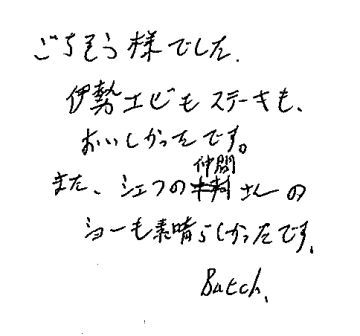 ごちそう様でした.
伊勢エビもステーキも、
おいしかったです。
仲間
また、シェフの さんの
ショーも素晴らしかったです.
Butch.